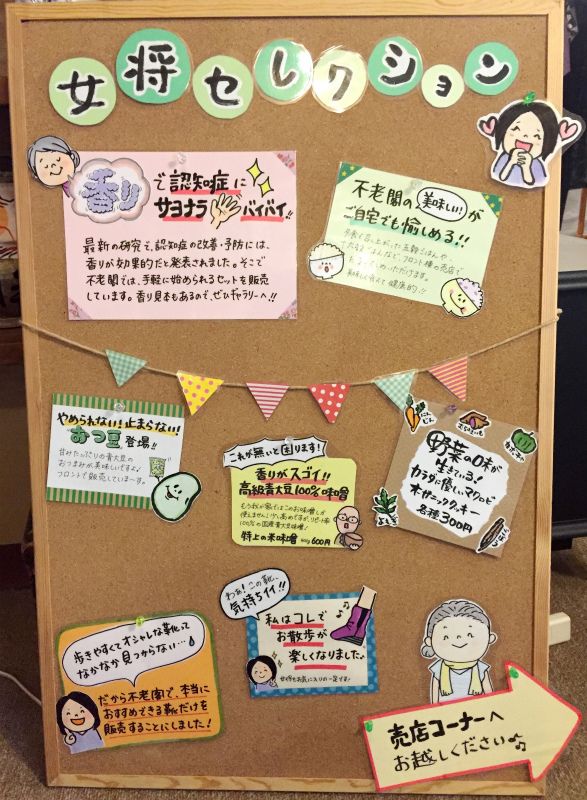 女将セレクション
香りで認知症に
サヨナラ バイバイ!!
最新の研究で、認知症の改善・予防には、
香りが効果的だと発表されました。そこで
不老閣では、手軽に始められるセットを販売
しています。香り見本もあるので、ぜひギャラリーへ!!
不老閣の美味しい!が
ご自宅でも愉しめる!!
やめられない!止まらない!
おつ豆 登場!!
甘みたっぷりの青大豆の
おつまみが美味しいですよ♪
フロントで販売していまーす。
これが無いと困ります!
香りがスゴイ!!
高級青大豆100%味噌
100%の国産青大豆味噌!
特上の米味噌 600円
にんじん
さつまいも
よもぎ
ごぼう
野菜の味が
生きている!
カラダに優しいマクロビ
米ザニックッキー
各種300円
歩きやすくてオシャレな靴って
なかなか見つからない…
だから不老閣で、本当に
おすすめできる靴だけを
販売することにしました!
わぁ!この靴、
気持ちイイ!!
私はコレで
お散歩が
楽しくなりました♪
女将もお気に入りの一足です!
売店コーナーへ
お越しください♪